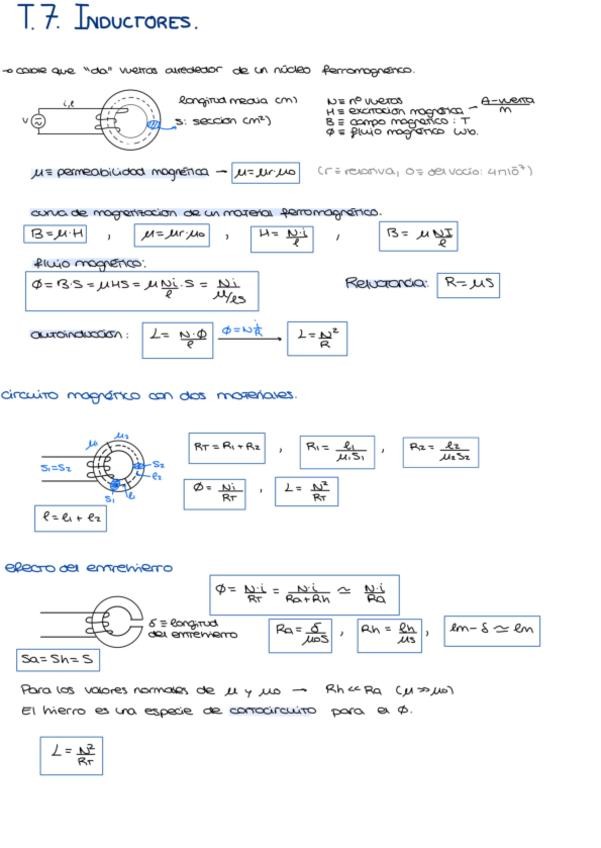 T.7. INDUCTORES.
→ cable que "da" vueltas alrededor de un núcleo ferromagnético.
i, l
V
longitud media (m)
S: sección (m²)
N ≡ nº vueltas
H ≡ excitación magnética – A-vuelta/m
B ≡ campo magnético: T
Ø ≡ flujo magnético Wb.
μ ≡ permeabilidad magnética → μ = μr·μ0 (r ≡ relativa, 0 ≡ del vacío: 4π10⁻⁷)
curva de magnetización de un material ferromagnético.
B = μ·H , μ = μr·μ0 , H = N·i/l , B = μ NI/l
flujo magnético:
Ø = B·S = μHS = μ Ni/l ·S = Ni/μ/lS
Reluctancia: R = μS
autoinducción: L = N·Ø/l Ø = N i/R → L = N²/R
circuito magnético con dos materiales.
μ1 μ2
S1=S2
S2
l2
S1 l1
l = l1 + l2
RT = R1 + R2 , R1 = l1/μ1S1 , R2 = l2/μ2S2
Ø = Ni/RT , L = N²/RT
efecto del entrehierro
δ ≡ longitud
del entrehierro
Sa = Sh = S
Ø = N·i/RT = N·i/Ra+Rh ≃ N·i/Ra
Ra = δ/μ0S , Rh = lh/μS , lm-δ ≃ lm
Para los valores normales de μ y μ0 → Rh << Ra (μ >> μ0)
El hierro es una especie de cortocircuito para el Ø.
L = N²/RT